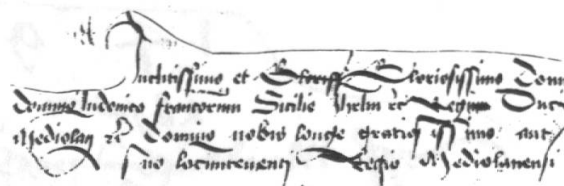 Inclitissimo et Gloriosissimo Domi
domino ludovico francorum Sicilie Jhrlm etc Regum Duci
Mediolani etc Domino nobis longe gratiosissimo aut
suo locumtenenti Regio Mediolanensi